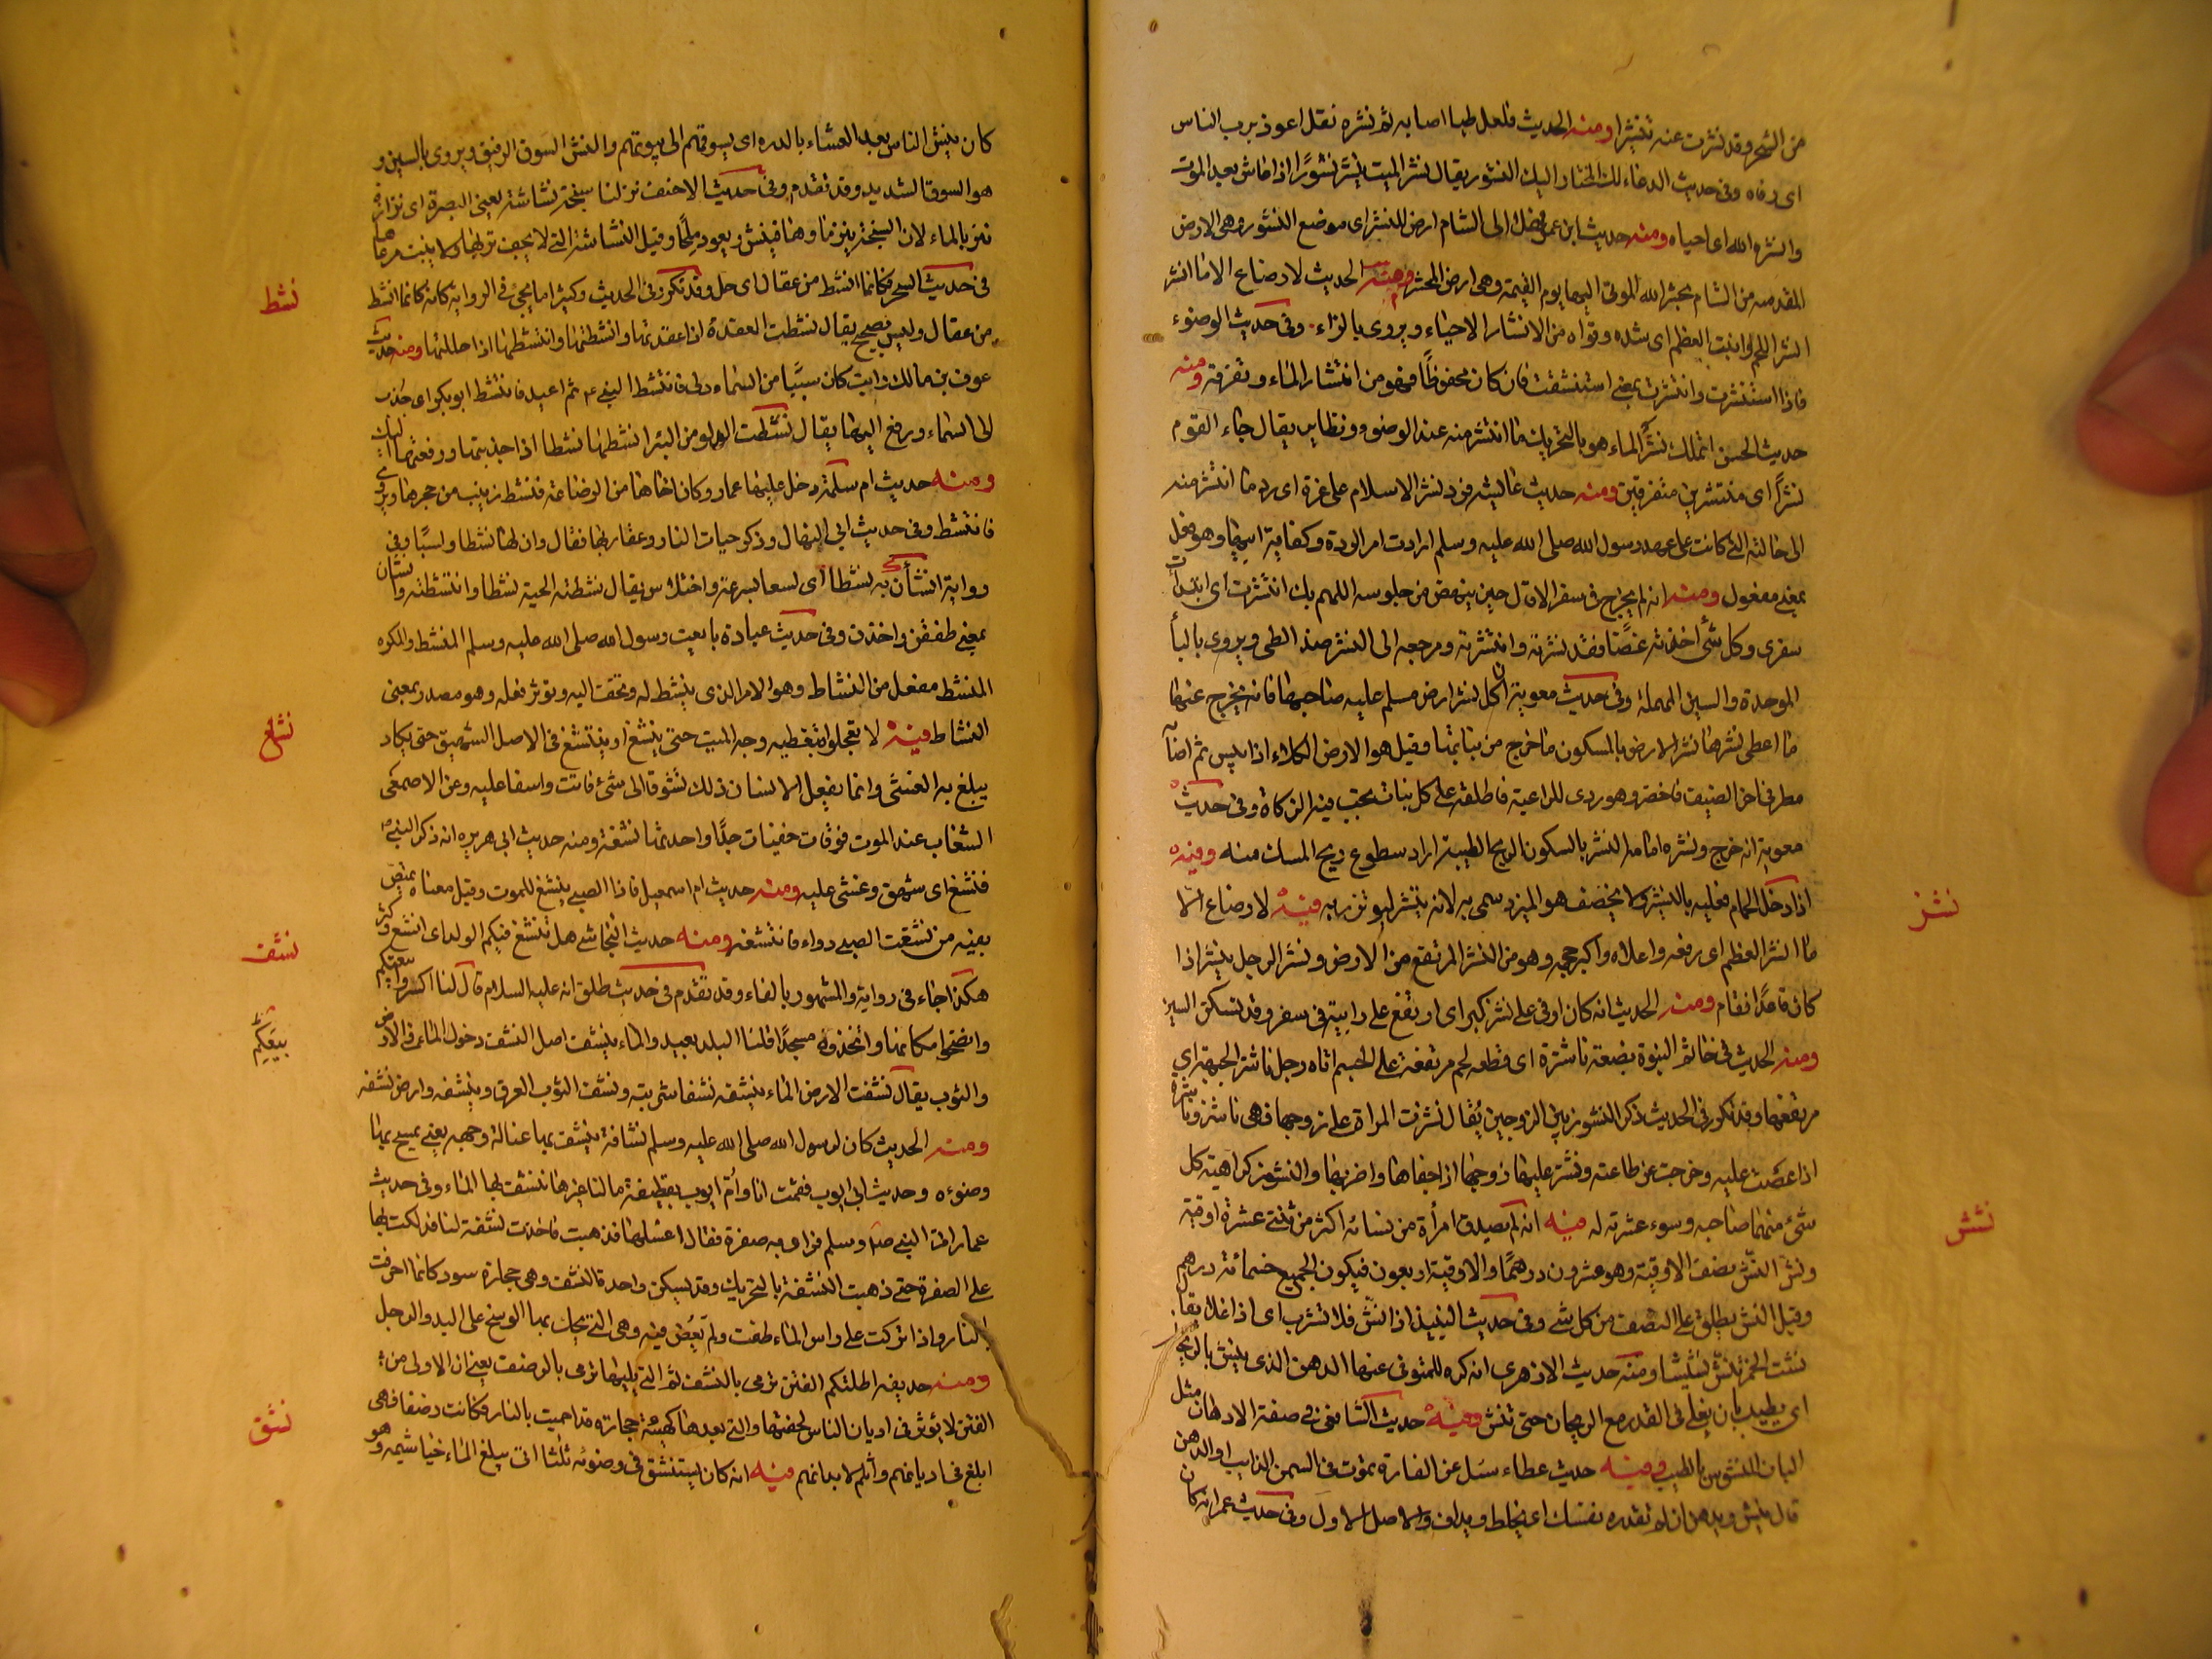 من السحر وقد نشرت عنه تنشيرا ومنه الحديث فلعل طبا اصابه ثم نشره نقل اعوذ برب الناس
اى رقاه وفى حديث الدعاء لك المحيا واليك النشور يقال نشر الميت ينشر نشورًا اذا عاش بعد الموت
وانشره الله اى احياه ومنه حديث ابن عمر فهلا الى الشام ارض المنشر اى موضع النشور وهى الارض
المقدسه من الشام يحشر الله الموتى اليها يوم القيمة وهى ارض المحشر ومنه الحديث لا رضاع الا ما انشر
انشر اللحم وانبت العظم اى شده وقواه من الانشار الاحياء ويروى بالزاء وفى حديث الوضوء
فاذا استنشرت وانتشرت بمعنى استنشقت فان كان محفوظًا فهو من انتشار الماء وتفرقه ومنه
حديث الحسن اتملك نشر الماء هو بالتحريك ما انتشر منه عند الوضوء وتطاير يقال جاء القوم
نشرًا اى منتشرين متفرقين ومنه حديث عائشه فرد نشر الاسلام على غرة اى رد ما انتشر منه
الى حالته التى كانت على عهد رسول الله صلى الله عليه وسلم ارادت امر الردة وكفاية ابيها وهو فعل
بمعنى مفعول ومنه انه لم يخرج فى سفر الا قال حين ينهض من جلوسه اللهم بك انتشرت اى ابتدأت
سفرى وكل شىء اخذته غضًا فقد نشرته وانتشرته ومرجعه الى النشر ضد الطى ويروى بالبأ
الموحدة والسين المهملة وفى حديث معوية اكل نشر ارض مسلم عليه صاحبها فانه يخرج عنها
ما اعطى نشرها نشر الارض بالسكون ما خرج من نباتها وقيل هو الارض الكلاء اذا يبس ثم اصابه
مطر فى اخر الصيف فاخضر وهو ردى للراعية فاطلقه على كل نبات يجب فيه الزكاة وفى حديث
معوية انه خرج ونشره امامه النشر بالسكون الريح الطيبة اراد سطوع ريح المسك منه وفيه
اذا دخل الحمام فعليه بالنشير ولا يخصف هو الميزر سمى به لانه ينشر ليوتزر به فيه لا رضاع الا
ما انشز العظم اى رفعه واعلاه واكبر حجمه وهو من النشز المرتفع من الارض ونشز الرجل ينشز اذا
كان قاعدًا فقام ومنه الحديث انه كان اوفى على نشز كبر اى ارتفع على رابية فى سفر وقد تسكن الشين
ومنه الحديث فى خاتم النبوة بضعة ناشزة اى قطعه لحم مرتفعة على الجسم اتاه رجل ناشز الجبهة اى
مرتفعها وقد تكرر فى الحديث ذكر النشوز بين الزوجين يقال نشزت المراة على زوجها فهى ناشز وناشزة
اذا عصت عليه وخرجت عن طاعته ونشز عليها زوجها اذا جفاها واضر بها والنشوز كراهية كل
شىء منهما صاحبه وسوء عشرته له فيه انه لم يصدق امرأة من نسائه اكثر من ثنتى عشرة اوقية
ونش النش نصف الاوقية وهو عشرون درهمًا والاوقية اربعون فيكون الجميع خمسمائة درهم
وقيل النش يطلق على النصف من كل شى وفى حديث النبيذ اذا نش فلا تشرب اى اذا غلا يقال
نشت الخمر تنش نشيشا ومنه حديث الازهرى انه كره للمتوفى عنها الدهن الذى ينش بالريحان
اى يطيب بان يغلى فى القدر مع الريحان حتى تنش وفيه حديث الشافعى فى صفة الادهان مثل
البان المنشوش بالطيب وفيه حديث عطاء سئل عن الفارة يموت فى السمن الذايب او الدهن
قال ينش ويدهن ان لم تقذره نفسك اى يخلط ويداف والاصل الاول وفى حديث عمر انه كان
نشز
نشش
كان ينش الناس بعد العشاء بالدره اى يسوقهم الى بيوتهم والنش السوق الرفيق ويروى بالسين و
هو السوق الشديد وقد تقدم وفى حديث الاحنف نزلنا سبخة نشاشة يعنى البصرة اى نزازة
تنز بالماء لان السبخة ينز ماوها فينش ويعود ملحًا وقيل النشاشة التى لا يجف تربها ولا ينبت مرعاها
فى حديث السحر فكانما انشط من عقال اى حل وقد تكرر فى الحديث وكثيرا ما يجئ فى الرواية كانه كانما انشط
من عقال وليس بصحيح يقال نشطت العقدة اذا عقدتها وانشطتها وانتشطتها اذا حللتها ومنه حديث
عوف بن مالك رايت كان سببًا من السماء دلى فانتشط النبى ثم اعيد فانتشط ابو بكر اى جذب
الى السماء ورفع اليها يقال نشطت الدلو من البئر انشطها نشطا اذا جذبتها ورفعتها اليك
ومنه حديث ام سلمة دخل عليها عمار وكان اخاها من الرضاعة فنشط زينب من حجرها ويروى
فانتشط وفى حديث ابى المنهال وذكر حيات النار وعقاربها فقال وان لها نشطا ولسبًا وفى
رواية انشأن به نشطا اى لسعا بسرعة واختلاس يقال نشطته الحية نشطا وانتشطته وانشان
بمعنى طفقن واخذن وفى حديث عبادة بايعت رسول الله صلى الله عليه وسلم المنشط والمكره
المنشط مفعل من النشاط وهو الامر الذى ينشط له وتخف اليه ويوثر فعله وهو مصدر بمعنى
النشاط فيه لا تعجلوا بتغطيه وجه الميت حتى ينشغ او ينتشغ فى الاصل الشهيق حتى يكاد
يبلغ به الغشى وانما يفعل الانسان ذلك تشوقا الى شىء فائت واسفا عليه وعن الاصمعى
النشغات عند الموت فوقات خفيات جدًا واحدتها نشغة ومنه حديث ابى هريره انه ذكر النبى
فنشغ اى شهق وغشى عليه ومنه حديث ام اسمعيل فاذا الصبى ينشغ للموت وقيل معناه يمتص
بفيه من نشغت الصبى دواء فانتشغه ومنه حديث النجاشى هل تنشغ فيكم الولد اى اتسع وكثر
هكذا جاء فى رواية والمشهور بالفاء وقد تقدم فى حديث طلق انه عليه السلام قال لنا اكسروا بيعتكم
وانضحوا مكانها واتخذوه مسجدًا قلنا البلد بعيد والماء ينشف اصل النشف دخول الماء فى الارض
والثوب يقال نشفت الارض الماء ينشفه نشفا شربته ونشف الثوب العرق وينشفه وارض نشفه
ومنه الحديث كان لرسول الله صلى الله عليه وسلم نشافة ينشف بها غسالة وجهه يعنى يمسح بها
وضوءه وحديث ابى ايوب فقمت انا وأم ايوب بقطيفة ما لنا غيرها ننشف بها الماء وفى حديث
عمار اتيت النبى صلى وسلم فراى به صفرة فقال اغسلها فذهبت فاخذت نشفة لنا فدلكت بها
على الصفرة حتى ذهبت النشفة بالتحريك وقد يسكن واحدة النشف وهى حجارة سود كانما احرقت
بالنار واذا تركت على راس الماء طفت ولم تغص فيه وهى التى يحك بها الوسخ على اليد والرجل
ومنه حديفه اطلتكم الفتن ترمى بالنشف ثم التى يليها ترمى بالرضف يعنى ان الاولى من
الفتن لا يؤثر فى اديان الناس لخفتها والتى بعدها كهيئة حجارة قد احميت بالنار فكانت رضفا فهى
ابلغ فى اديانهم وأثلم لابدانهم فيه انه كان يستنشق فى وضوئه ثلثا اى يبلغ الماء خياشيمه وهو
نشط
نشغ
نشف
بيعتكم
نشق